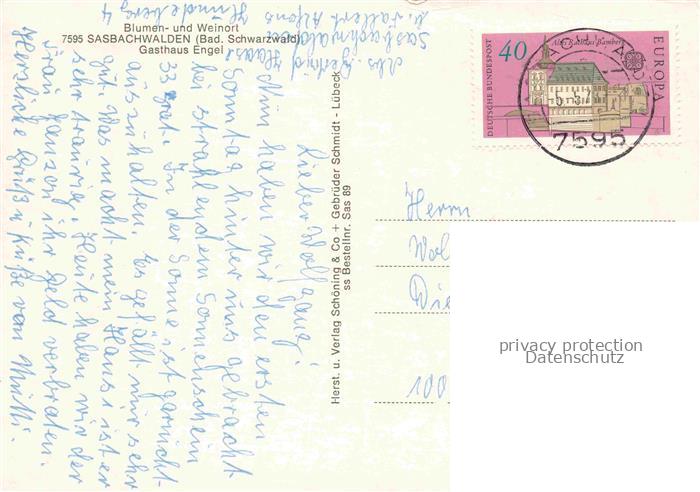 Blumen- und Weinort
7595 SASBACHWALDEN (Bad. Schwarzwald)
Gasthaus Engel
Haase
Sasbachwalden
Lieber Wolfgang!
Nun haben wir den ersten
Sonntag hinter uns gebracht
bei strahlendem Sonnenschein
33 Grd. In der Sonne ist garnicht
auszuhalten. Es gefällt mir sehr
gut. Was macht mein Hansi ist er
sehr traurig. Heute haben wir der
Frau ihr Geld verbraten.
Herzliche Grüße u. Küße von Mutti.
Herst. u. Verlag Schöning & Co + Gebrüder Schmidt - Lübeck
ss Bestellnr. Sas 89
DEUTSCHE BUNDESPOST
40
Altes Rathaus Bamberg
EUROPA
7595
Herrn
Wol
Die
100
privacy protection
Datenschutz